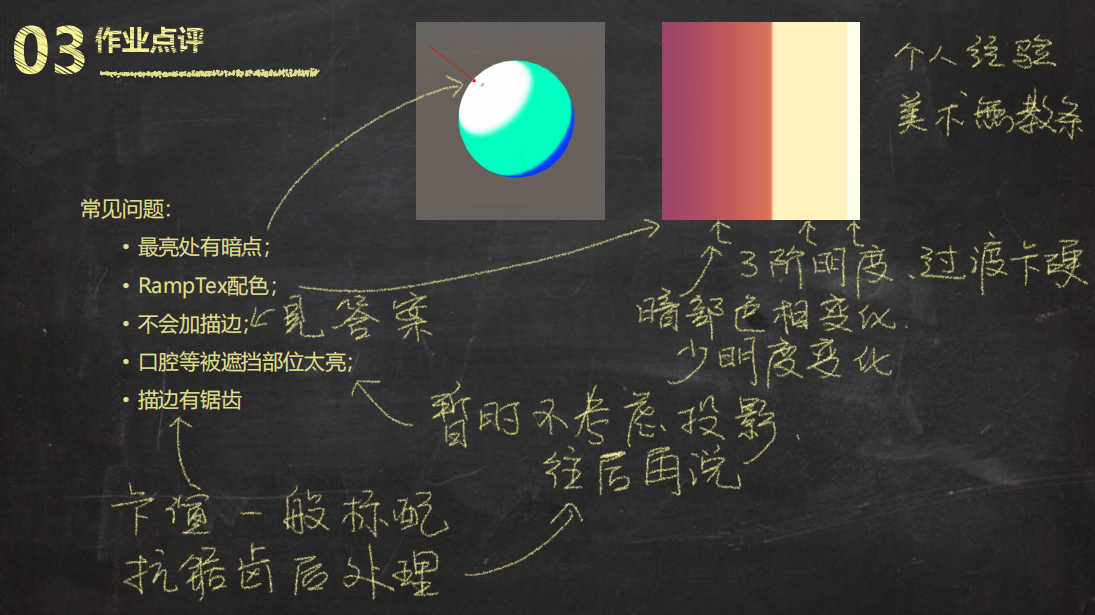 03 作业点评
个人经验
美术无教条
常见问题：
• 最亮处有暗点；
• RampTex配色；
• 不会加描边；
见答案
• 口腔等被遮挡部位太亮；
• 描边有锯齿
3阶明度、过渡卡硬
暗部色相变化.
少明度变化
暂时不考虑投影.
往后再说
卡渲一般标配
抗锯齿后处理